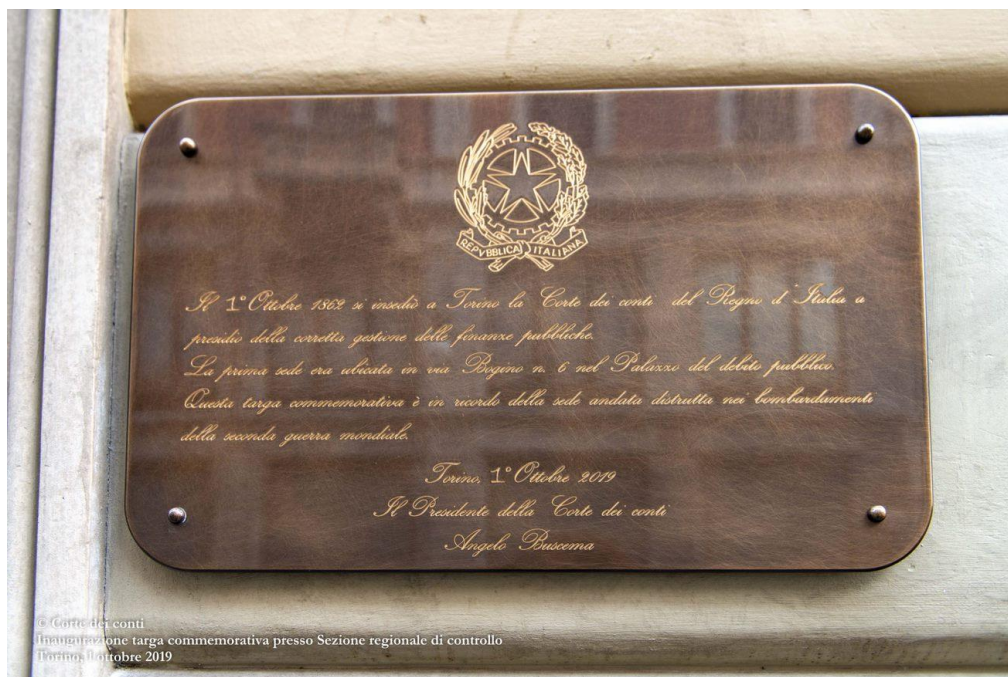 REPVBBLICA ITALIANA
Il 1° Ottobre 1862 si insediò a Torino la Corte dei conti del Regno d'Italia a
presidio della corretta gestione delle finanze pubbliche.
La prima sede era ubicata in via Bogino n. 6 nel Palazzo del debito pubblico.
Questa targa commemorativa è in ricordo della sede andata distrutta nei bombardamenti
della seconda guerra mondiale.
Torino, 1° Ottobre 2019
Il Presidente della Corte dei conti
Angelo Buscema
© Corte dei conti
Inaugurazione targa commemorativa presso Sezione regionale di controllo
Torino, 1 ottobre 2019